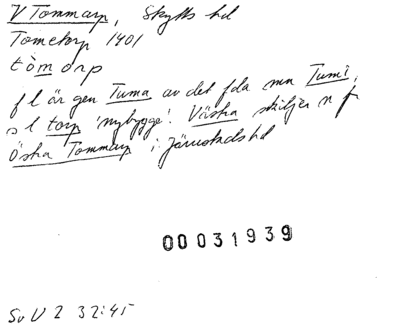 V Tommarp, Skytts hd
Tometorp 1401
tòmorp
f l är gen Tuma av det fda mn Tumi,
s l torp 'nybygge'. Västra skiljer n fr
Östra Tommarp i Järrestads hd
00031939
SvU 2 32:45